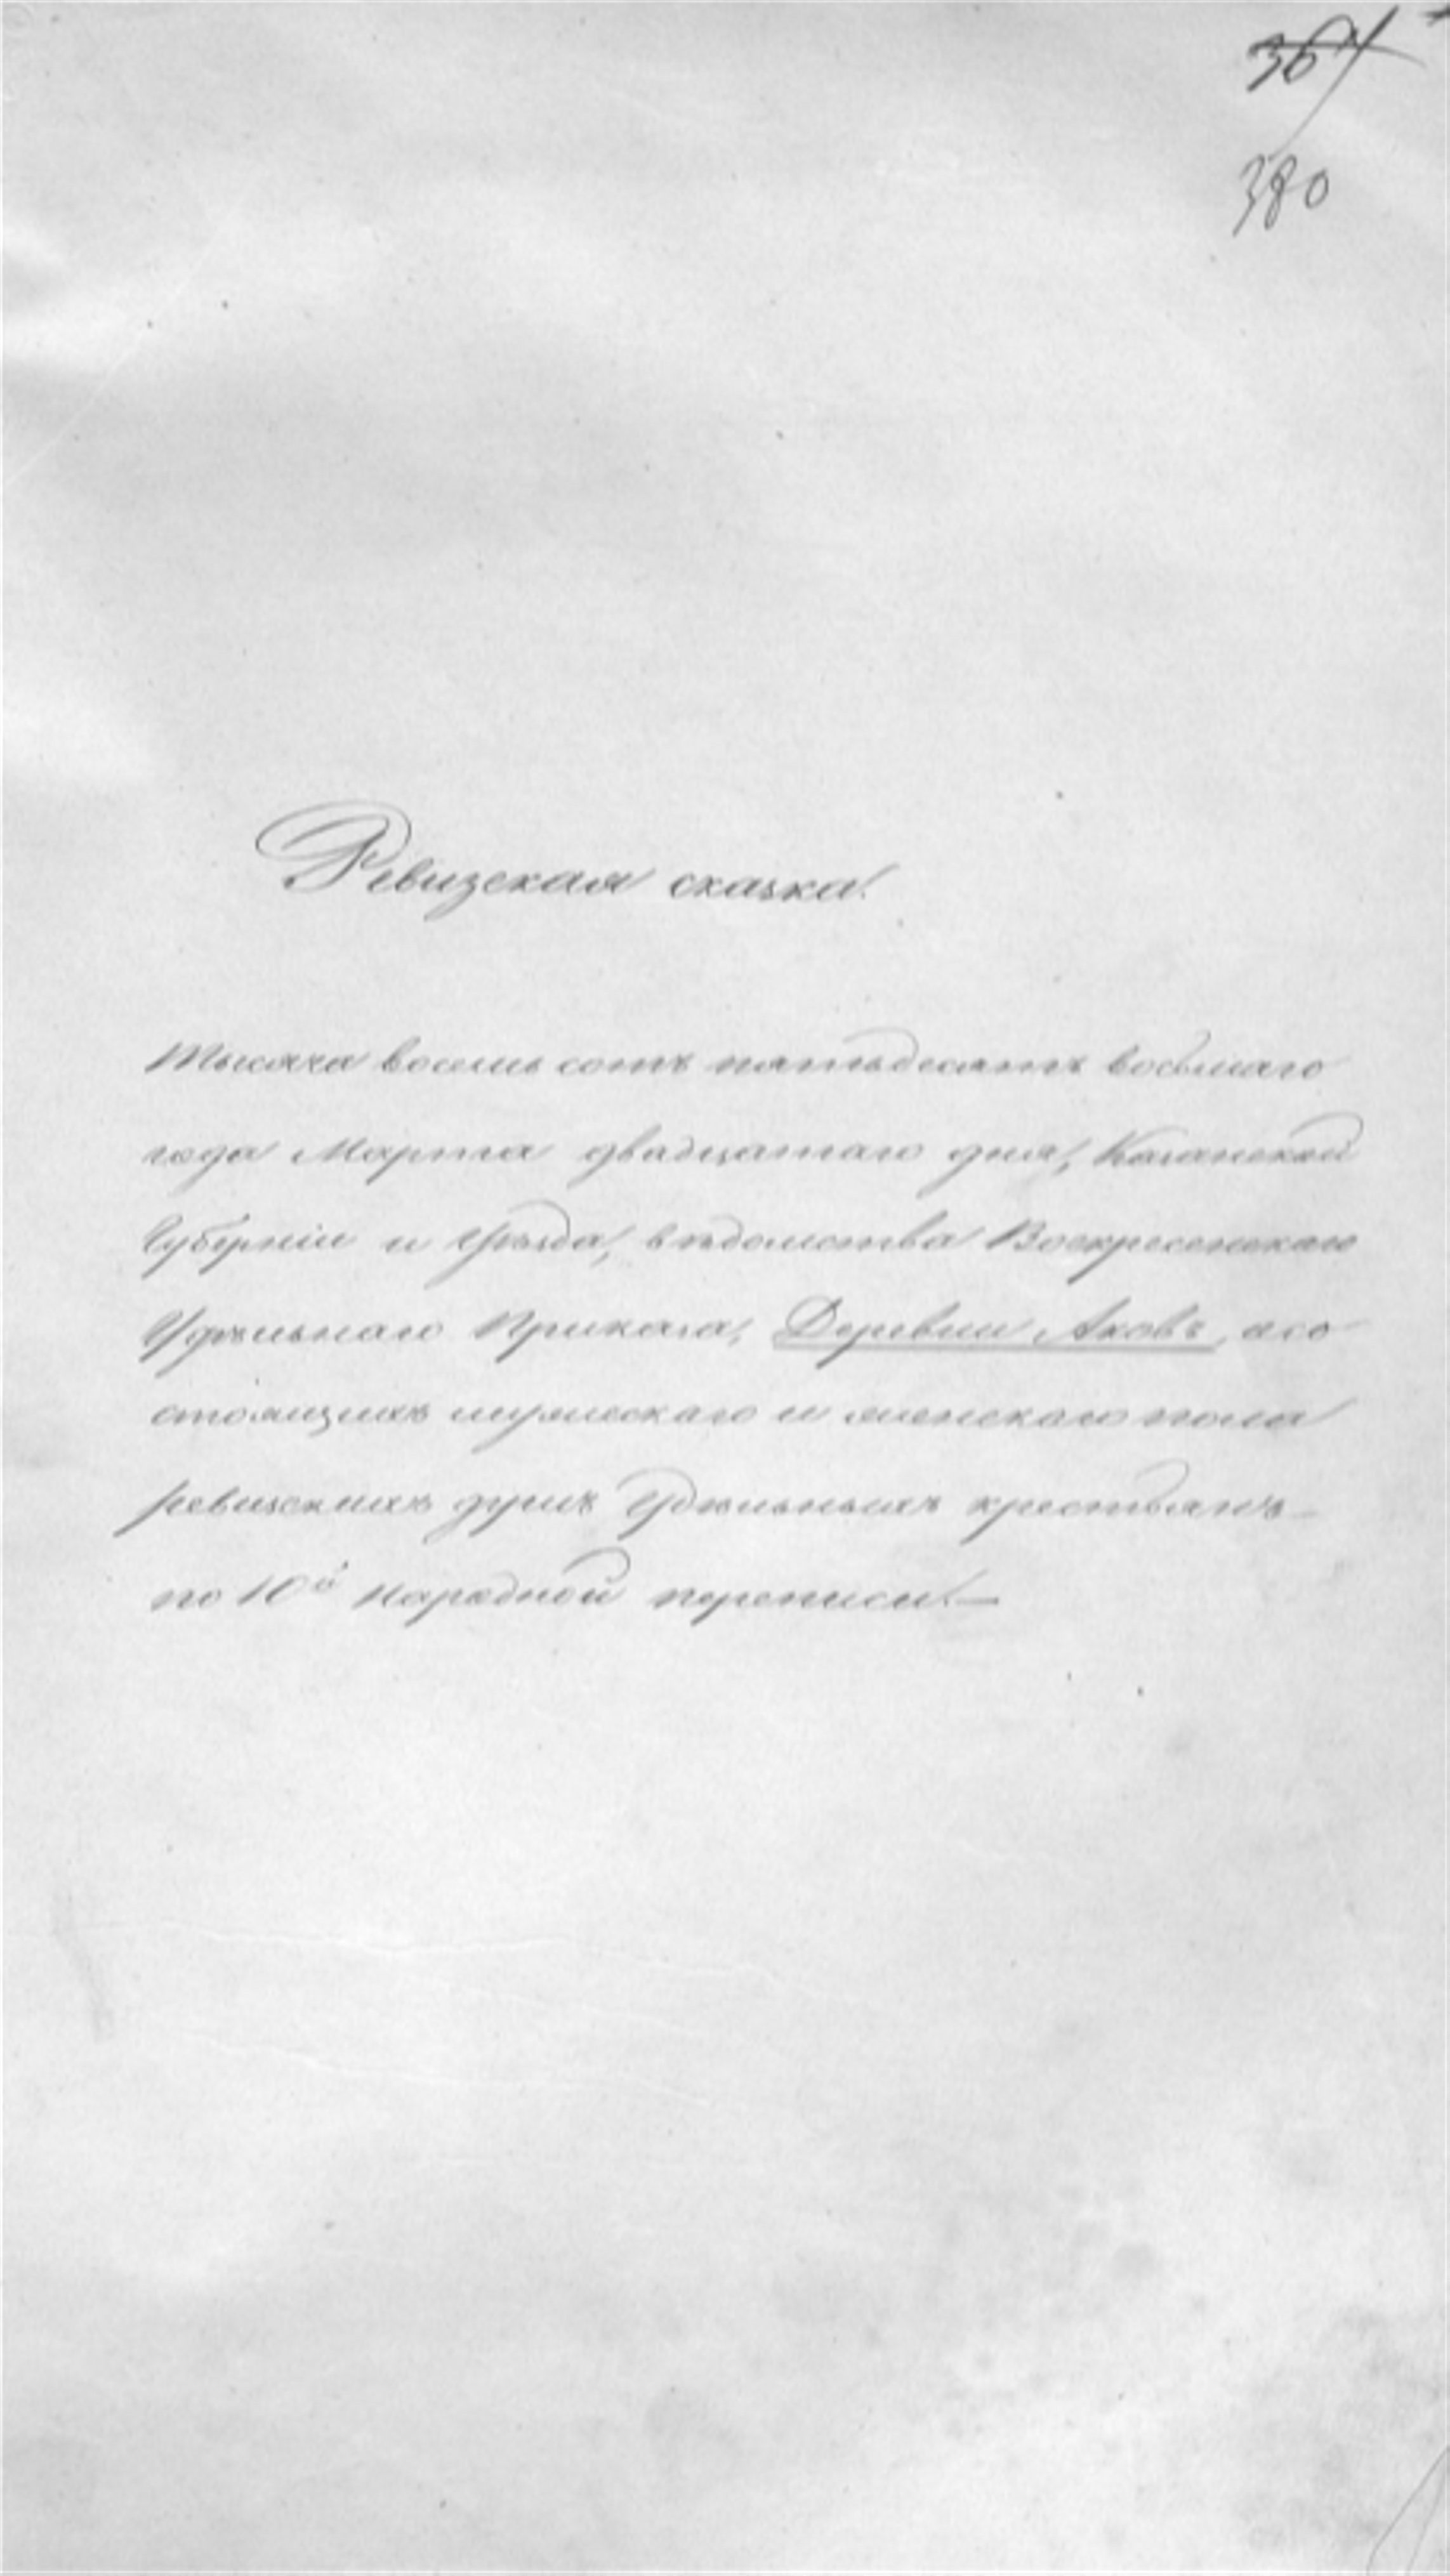 380
Ревизская сказка.
Тысяча восемь сотъ пятьдесятъ восьмаго
года Марта двадцатаго дня, Казанской
Губерніи и уѣзда, вѣдомства Воскресенскаго
Удѣльнаго Приказа, Деревни Аковъ, о со
стоящихъ мужескаго и женскаго пола
ревизскихъ душъ Удѣльныхъ крестьянъ
по 10й Народной переписи.—